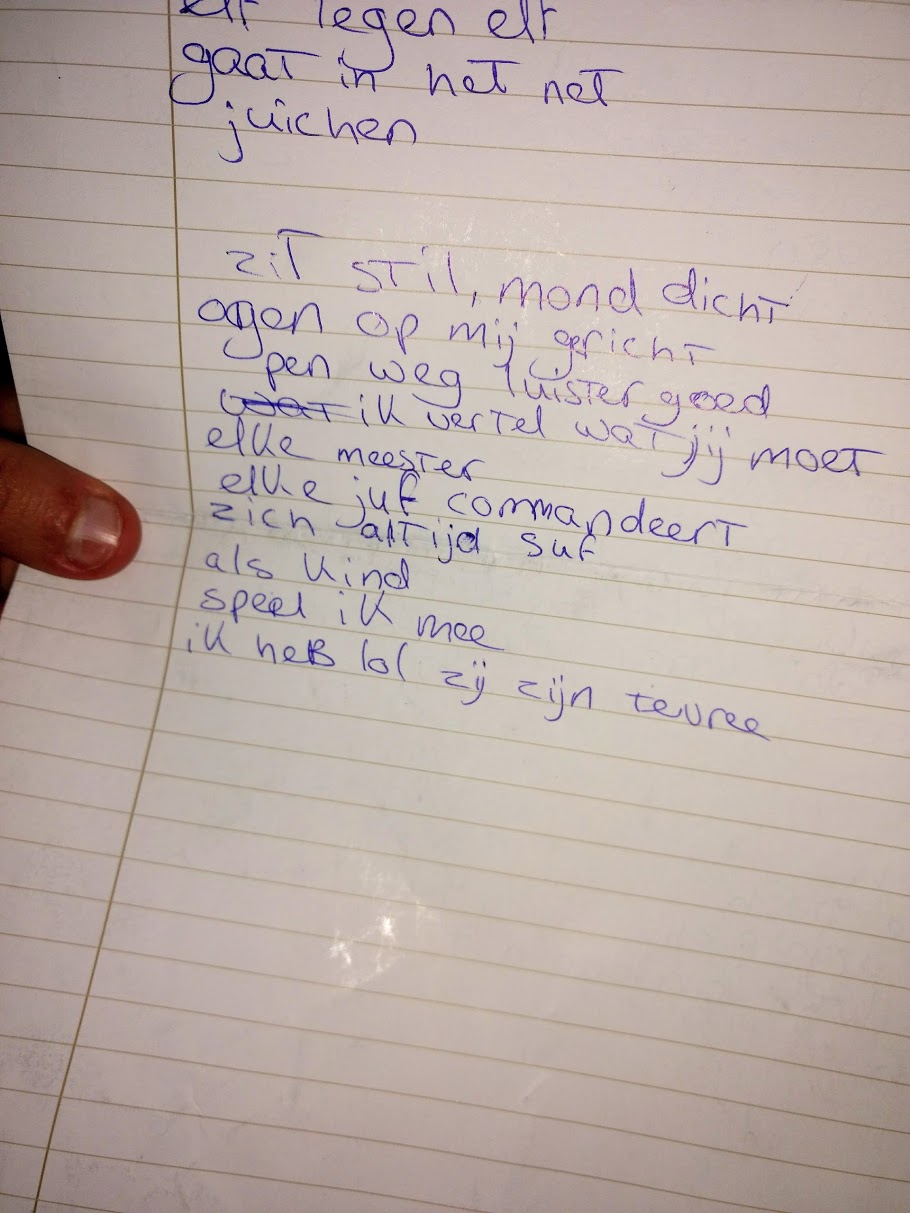 elf tegen elf
gaat in het net
juichen
zit stil, mond dicht
ogen op mij gericht
pen weg luister goed
wat ik vertel wat jij moet
elke meester
elke juf commandeert
zich altijd suf
als kind
speel ik mee
ik heb lol zij zijn tevree